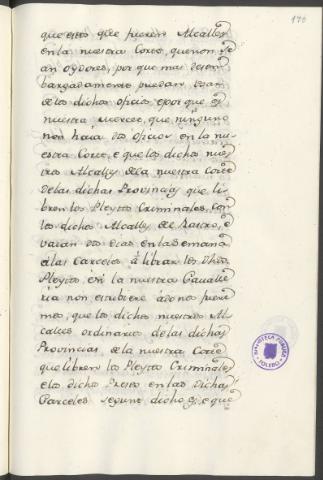 170
que estos que fueren Alcalles
en la nuestra Corte, que non se
an oydores, por que mas desem
bargadamente puedan usar
de los dichos oficios e por que es
nuestra mercee, que ninguno
non haia dos oficios en la nu-
estra Corte, e que los dichos nues
tros Alcalles de la nuestra Corte
de las dichas Provincias que li-
bren los Pleytos Criminales con
los dichos Alcalles de Rastro, e
vaian dos dias en la Semana
a las Carceles á librar los dhos
Pleytos, e si la nuestra
non estubiere ádo nos fuere
mos, que los dichos nuestros Al-
calles ordinarios de las dichas
Provincias, de la nuestra Corte
que libren los Pleytos Criminales
e los dichos Presos en las dichas
Carceles segunt dicho es, e que
BIBLIOTECA PUBLICA
TOLEDO